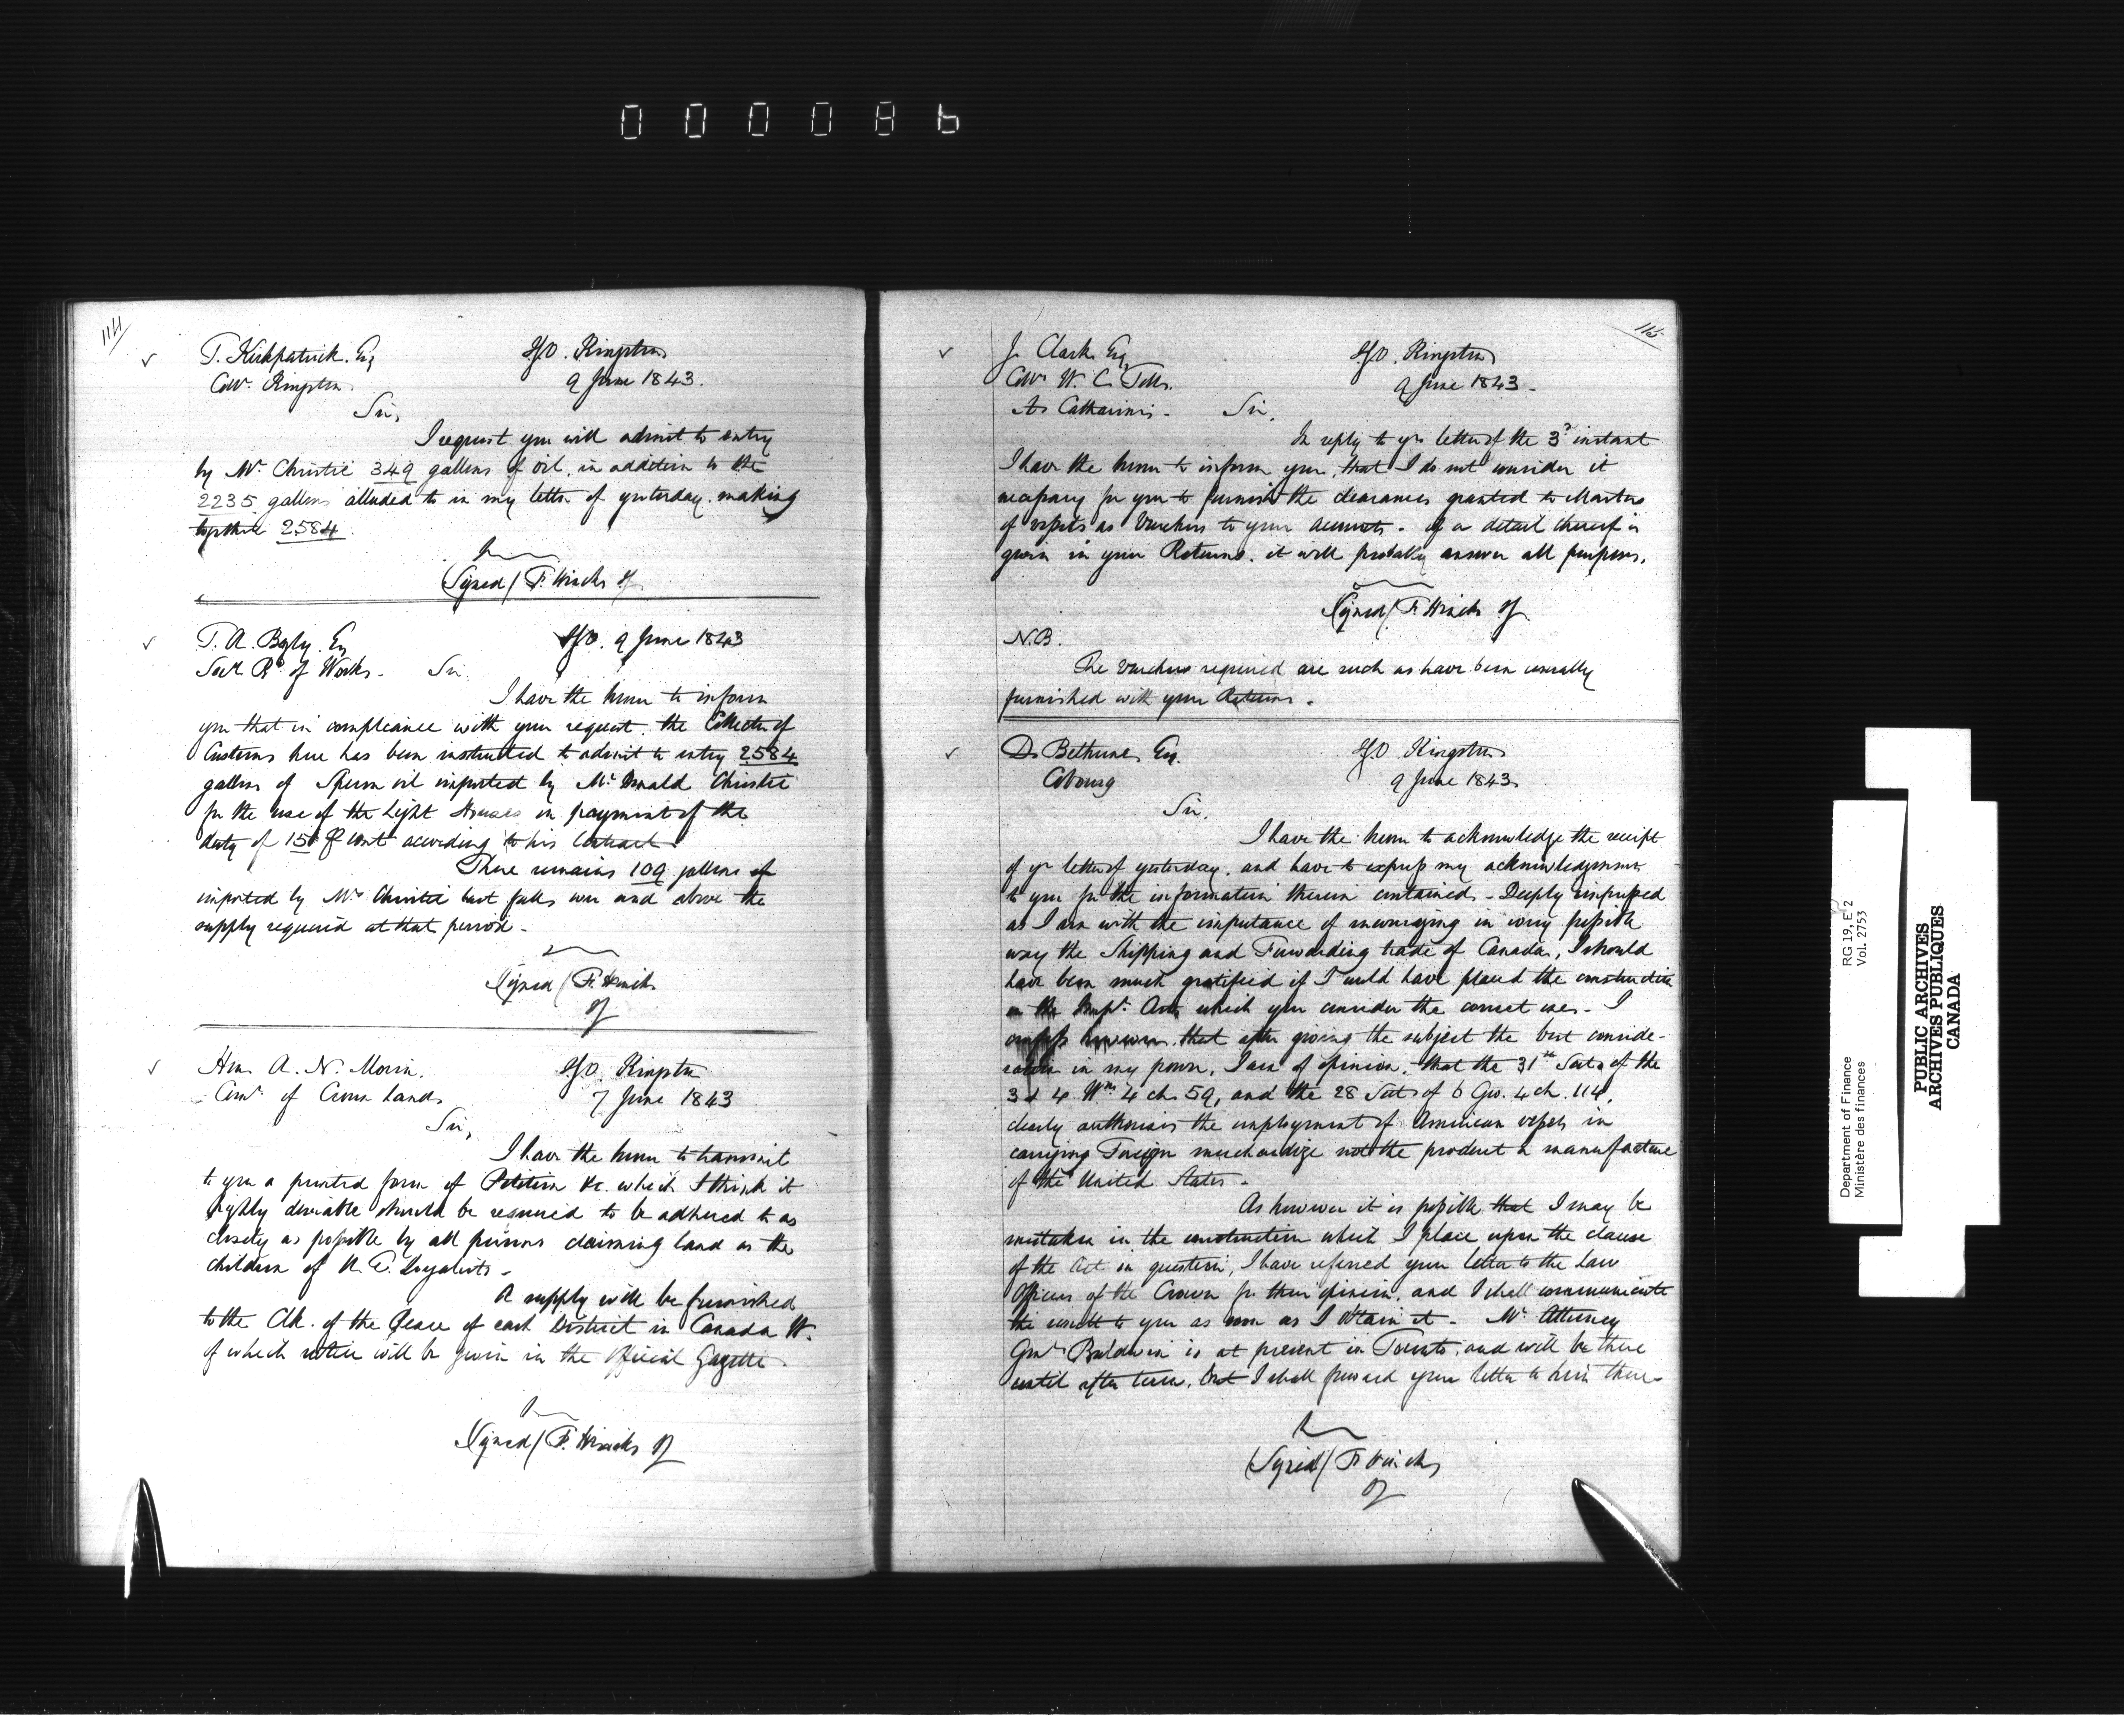 000086
114
T. Kirkpatrick Esq
Collr. Kingston
IGO. Kingston
9 June 1843.
Sir,
I request you will admit to entry
by Mr. Christie 349 gallons of oil, in addition to the
2235 gallons alluded to in my letter of yesterday. making
together 2584.
(Signed/ F. Hincks IG
T. A. Begly. Esq
Secr. Bd. of Works.
IGO. 9 June 1843
Sir.
I have the honor to inform
you that in compliance with your request the Collector of
Customs here has been instructed to admit to entry 2584
gallons of Sperm oil imported by Mr Donald Christie
for the use of the Light Houses on payment of the
duty of 15 P cent according to his Contract.
There remains 109 gallons
imported by Mr. Christie but falls over and above the
supply required at that period.
Signed/ F. Hincks
IG
Hon. A. N. Morin.
Comr. of Crown Lands
IGO. Kingston
7 June 1843
Sir,
I have the honor to transmit
to you a printed form of Petition &c. which I think it
highly desirable should be required to be adhered to as
closely as possible by all persons claiming land as the
children of U. E. Loyalists.
A supply will be furnished
to the Clk. of the Peace of each District in Canada W.
of which notice will be given in the Official Gazette.
Signed/ F. Hincks IG
115
J. Clark Esq
Collr W. C. Tolls.
St Catharines.
IGO. Kingston
9 June 1843.
Sir,
In reply to yr letter of the 3d instant
I have the honor to inform you, that I do not consider it
necessary for you to furnish the clearances granted to Masters
of vessels as Vouchers to your accounts. if a detail thereof is
given in your Returns. it will probably answer all purposes.
Signed/ F. Hincks IG
N.B.
The Vouchers required are such as have been usually
furnished with your Returns.
D. Bethune, Esq.
Cobourg
IGO. Kingston
9 June 1843
Sir,
I have the honor to acknowledge the receipt
of yr letter of yesterday, and have to express my acknowledgments
to you for the information therein contained. Deeply impressed
as I am with the importance of encouraging in every possible
way the Shipping and Forwarding trade of Canada, I should
have been much gratified if I could have placed the construction
on the Impl. Acts which you consider the correct ones. I
confess however, that after giving the subject the best conside-
ration in my power, I am of opinion, that the 31st Sect. of the
3 & 4 Wm 4 ch 59, and the 28 Sect of 6 Geo. 4 ch. 114,
clearly authorises the employment of American vessels in
carrying Foreign merchandize not the product or manufacture
of the United States.
As however it is possible that I may be
mistaken in the construction which I place upon the clause
of the Act in question, I have referred your letter to the Law
Officers of the Crown for their opinion, and I shall communicate
the result to you as soon as I obtain it. Mr Attorney
Genl. Baldwin is at present in Toronto, and will be there
until after term, but I shall forward your letter to him there.
(Signed/ F. Hincks
IG
Department of Finance
Ministère des finances
RG 19, E 2
Vol. 2753
PUBLIC ARCHIVES
ARCHIVES PUBLIQUES
CANADA